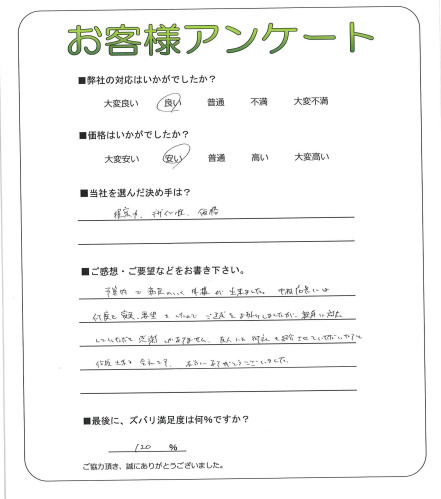 お客様アンケート
■弊社の対応はいかがでしたか？
大変良い 良い 普通 不満 大変不満
■価格はいかがでしたか？
大変安い 安い 普通 高い 大変高い
■当社を選んだ決め手は？
提案力、デザイン性、価格
■ご感想・ご要望などをお書き下さい。
予算内で満足のいく外構が出来ました。
何度も変更、要望を
ご迷惑をお掛けしましたが、親身に対応
していただき感謝しかありません。友人にも御社を紹介させていただいた
本当にありがとうございました。
■最後に、ズバリ満足度は何％ですか？
120 ％
ご協力頂き、誠にありがとうございました。